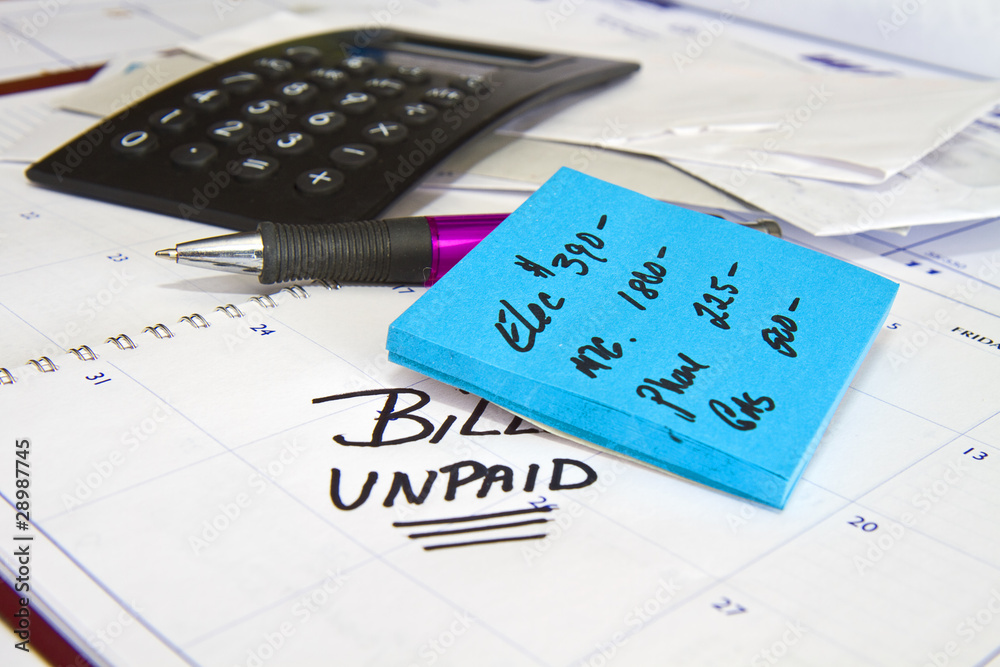 Elec $ 390-
M/C. 1880-
Phone 225-
GAS 600-
BILL
UNPAID
23
23
24
31
5
FRIDA
13
20
27
0
1
2
3
4
5
6
7
8
9
=
+
-
×
÷
Adobe Stock | #28987745